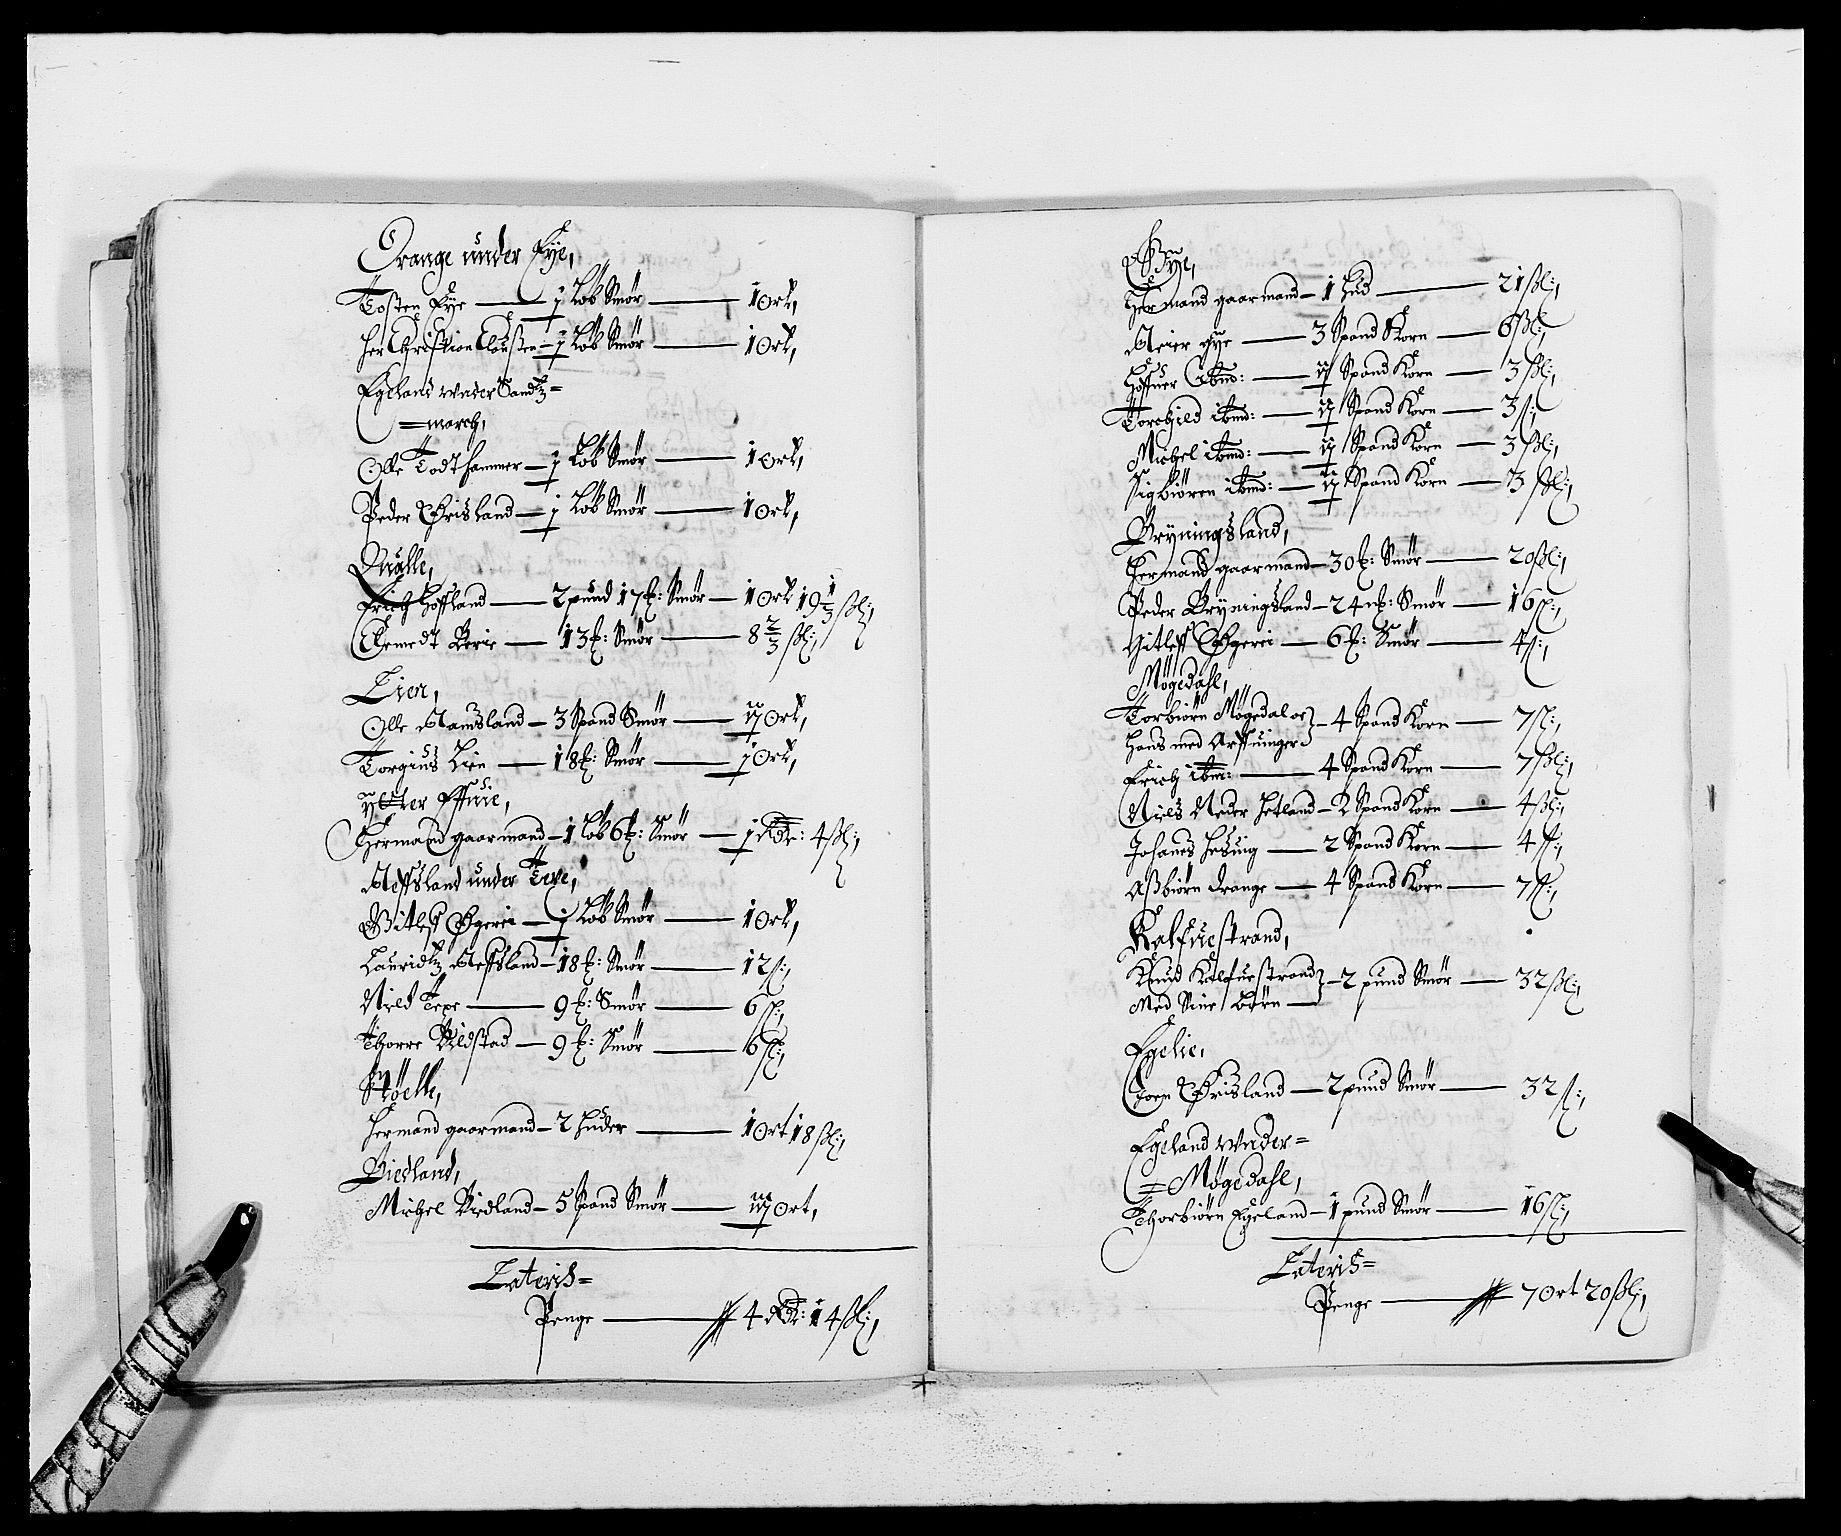 Drange under Eye,
Tosten Eye — j Løb Smør — 1 Ort,
Her Christion Claußen — j Løb Smør — 1 Ort,
Egeland under Sandtz=
=march,
Olle Todthammer — j Løb Smør — 1 Ort,
Peder Ørisland — j Løb Smør — 1 Ort,
Qualle,
Erich Hoffland — 2 pund 17 ℔: Smør — 1 Ort 19 1/3 ßl:,
Themedt Berie — 13 ℔: Smør — 8 2/3 ßl:,
Lien,
Olle Ramsland — 3 Spand Smør — ij Ort,
Torgius Lien — 18 ℔: Smør — j Ort,
Ytter Effuie,
Hermand gaarmand — 1 Løb 6 ℔: Smør — j Rdr: 4 ßl:,
Reffsland under Teve,
Gitleff Øgerei — j Løb Smør — 1 Ort,
Lauridtz Reffsland — 18 ℔: Smør — 12 ß:,
Nield Tepe — 9 ℔: Smør — 6 ß:,
Thorre Vldstad — 9 ℔: Smør — 6 ß:,
Støelle,
Hermand gaarmand — 2 Huder — 1 Ort 18 ßl:,
Birkland,
Michel Birkland — 5 Spand Smør — iij Ort,
Lateris=
Penge — 4 Rdr: 14 ßl:,
Gye,
Hermand gaarmand — 1 Hud — 21 ßl:,
Reier gye — 3 Spand Korn — 6 ßl:,
Ibmd: — ij Spand Korn — 3 ßl:,
Torchild ibmd: — ij Spand Korn — 3 ß:,
Michel ibmd: — ij Spand Korn — 3 ßl:,
Sigbiøren ibmd: — ij Spand Korn — 3 ßl:,
Bryningsland,
Hermand gaarmand — 30 ℔: Smør — 20 ßl:,
Peder Bryningsland — 24 ℔: Smør — 16 ß:,
Gitleff Øgerei — 6 ℔: Smør — 4 ß:,
Møgedahl,
Torbiørn Møgedal oc } — 4 Spand Korn — 7 ß:,
Hans med Arffuinger
Erich ibm: — 4 Spand Korn — 7 ßl:,
Niels Neder Hetland — 2 Spand Korn — 4 ßl:,
Johanes — 2 Spand Korn — 4 ß:,
Aßbiørn drange — 4 Spand Korn — 7 ß:,
Kalfuestrand,
Knud Kalfuestrand } — 2 pund Smør — 32 ßl:,
Med Sine Børn
Egelie,
Joen Ørisland — 2 pund Smør — 32 ß:,
Egeland under=
=Møgedahl,
Thorbiørn Egeland — 1 pund Smør — 16 ß:,
Lateris=
Penge — 7 Ort 20 ßl:,